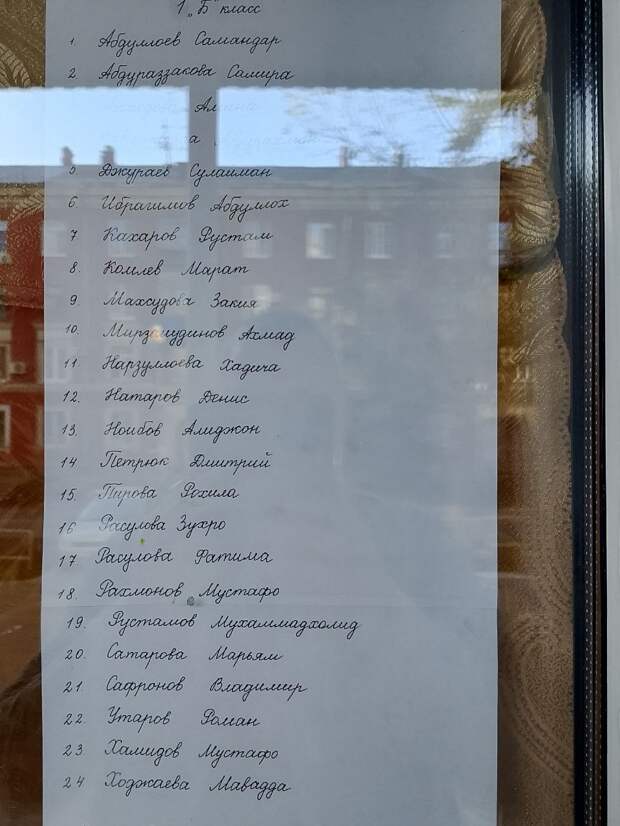 1 "Б" класс
1. Абдуллоев Самандар
2 Абдураззакова Самира
5. Джураев Сулаимان
6. Ибрагимов Абдуллох
7 Кахаров Рустам
8. Комлев Марат
9. Махсудова Закия
10. Ахмад
11. Нарзуллоева Хадича
12. Натаров Денис
13. Ноибов Алиджон
14 Петрюк Дмитрий
15 Пирова Рохила
16 Расулова Зухро
17 Расулова Фатима
18. Рахмонов Мустафо
19. Рустамов Мухаммадхолид
20. Сатарова Марьям
21. Сафронов Владимир
22. Утаров Роман
23 Хамидов Мустафо
24 Ходжаева Мавадда